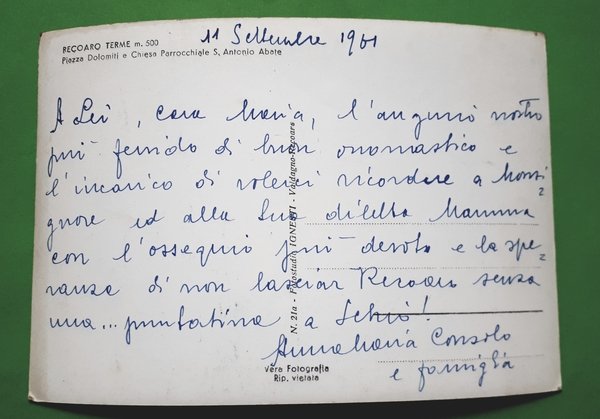 11 Settembre 1961
RECOARO TERME m. 500
Piazza Dolomiti e Chiesa Parrocchiale S. Antonio Abate
A Lei, cara Maria, l'augurio nostro
più fervido di buon onomastico e
l'incarico di volerci ricordare a Monsi=
gnore ed alla Sua diletta Mamma
con l'ossequio più devoto e la spe=
ranza di non lasciar Recoaro senza
una... puntatina a Schio!
Annamaria Consolo
e famiglia
N. 21a - Fotostudio IGNESTI - Valdagno-Recoaro
Vera Fotografia
Rip. vietata